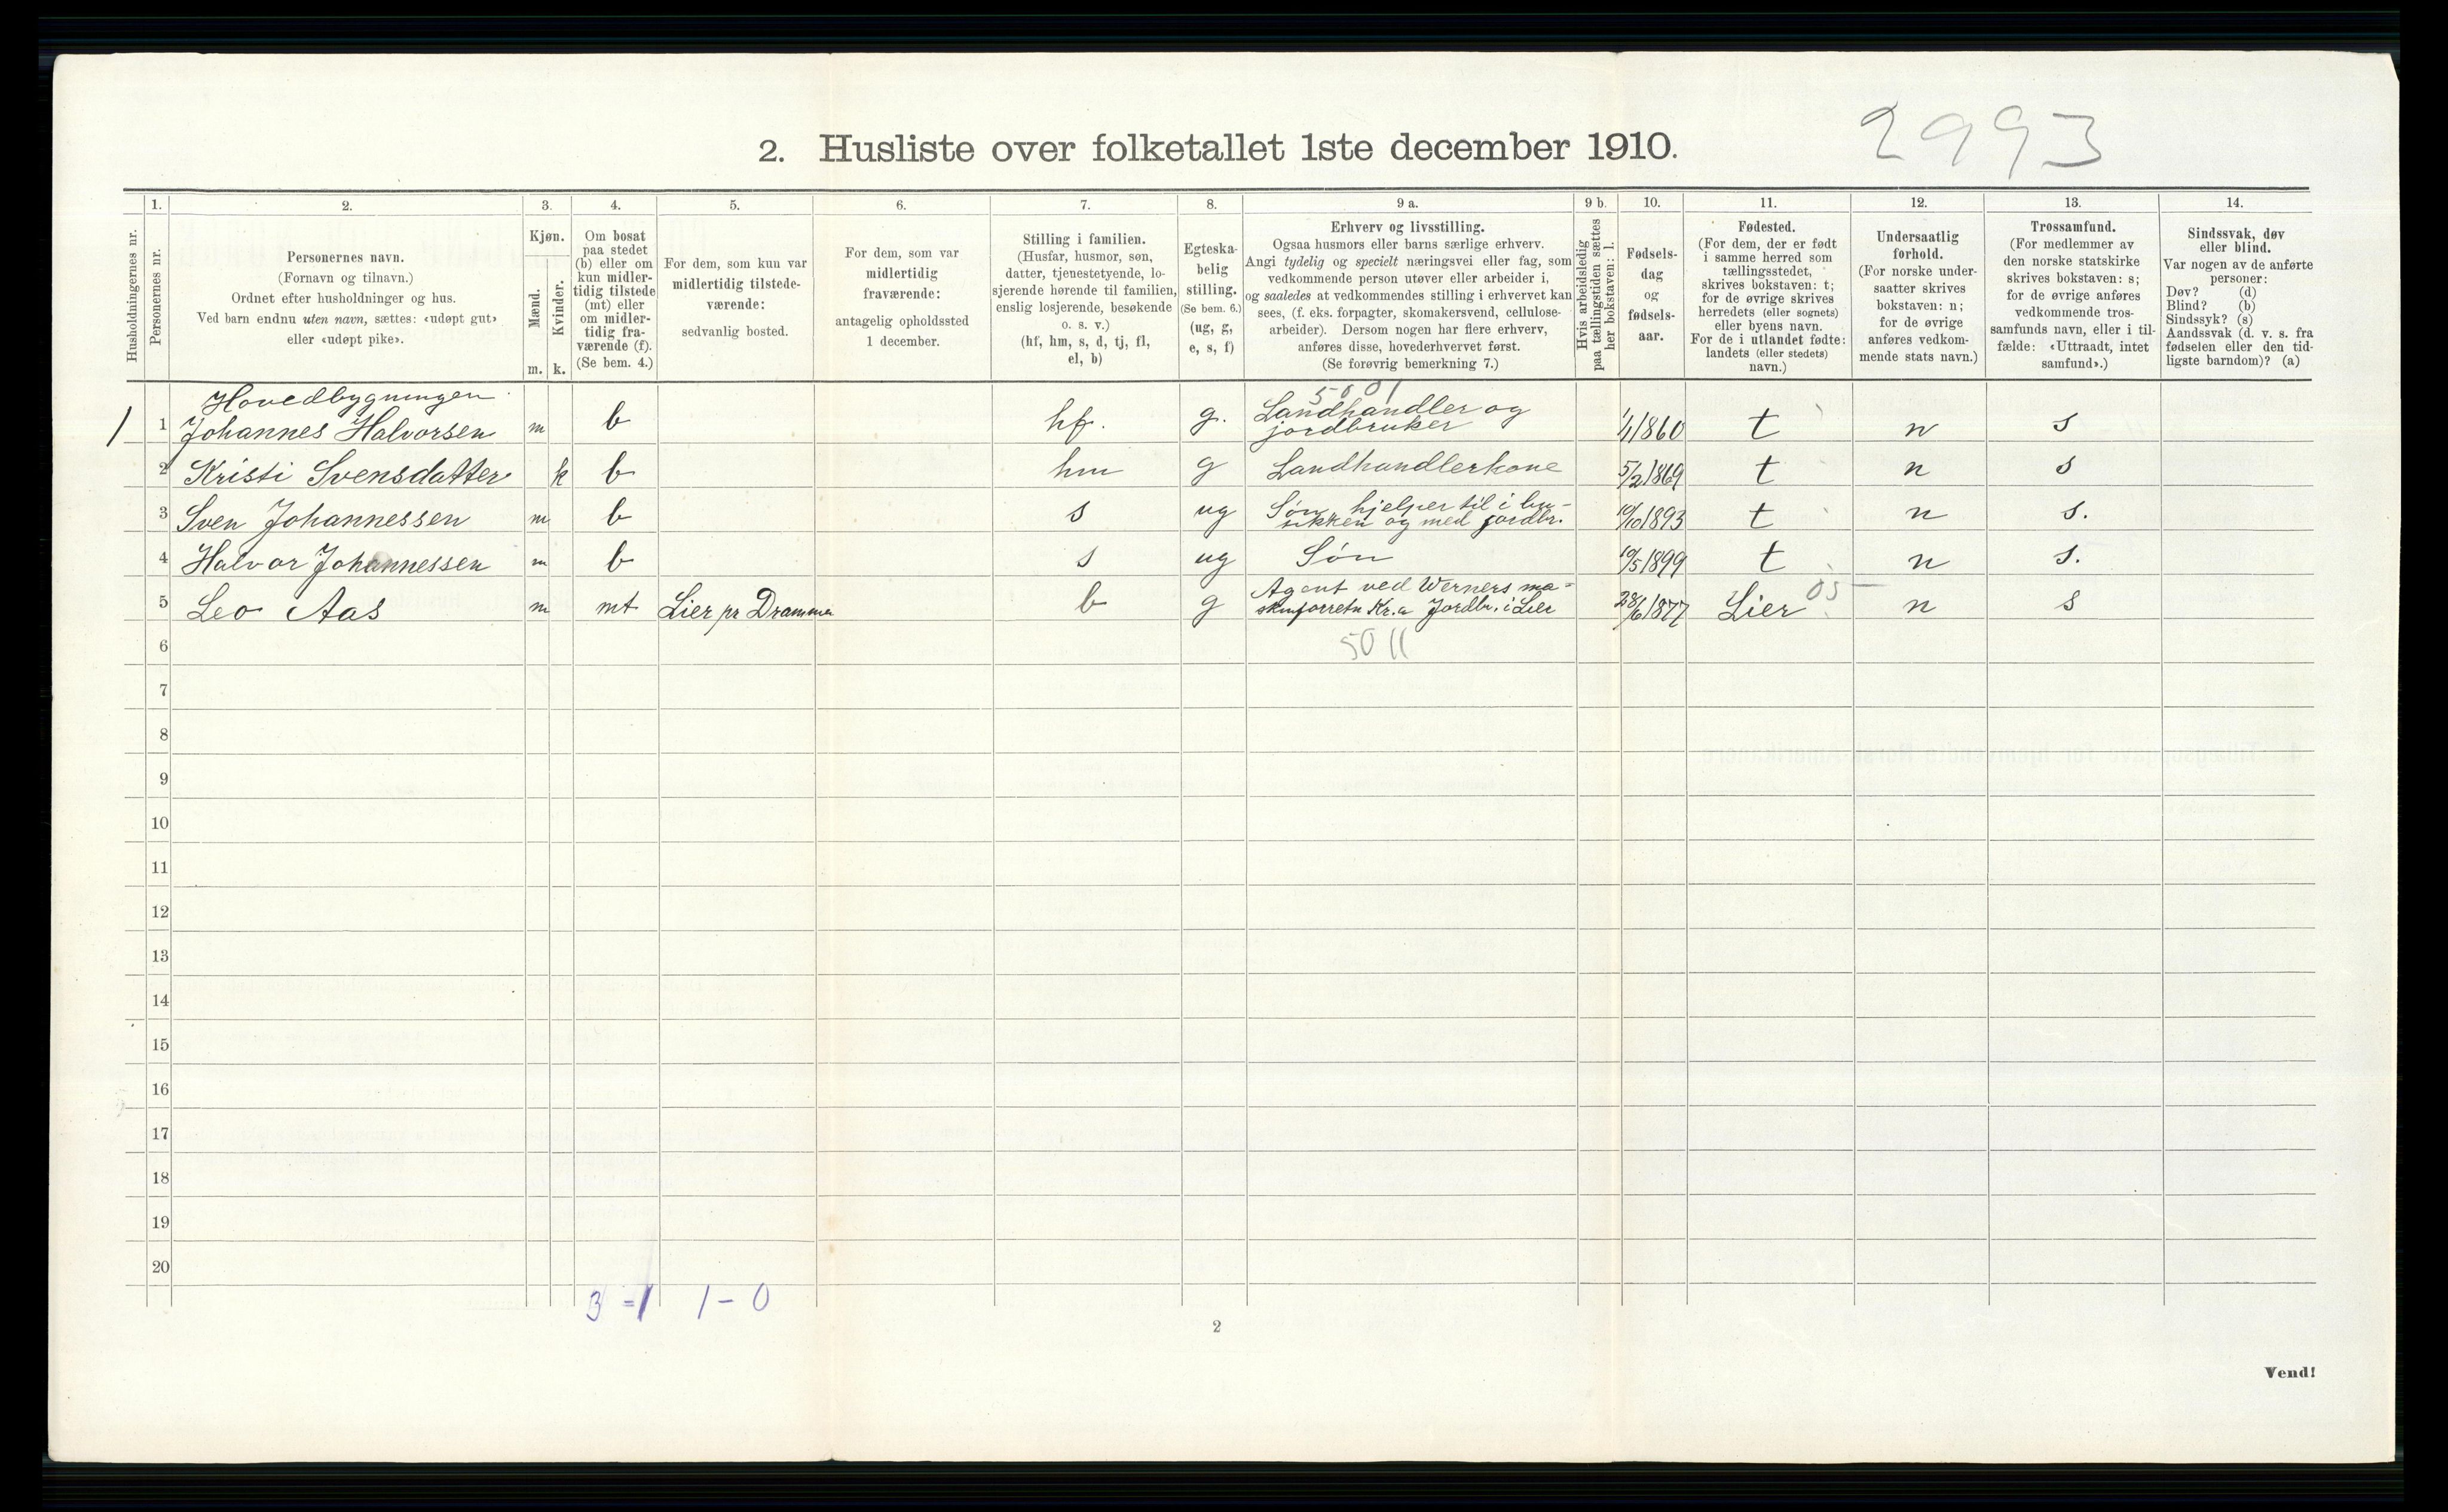 2993
2. Husliste over folketallet 1ste december 1910.
Husholdningernes nr.
1. Personernes nr.
2. Personernes navn.
(Fornavn og tilnavn.)
Ordnet efter husholdninger og hus.
Ved barn endnu uten navn, sættes: «udøpt gut»
eller «udøpt pike».
3. Kjøn.
Mænd. m.
Kvinder. k.
4. Om bosat
paa stedet
(b) eller om
kun midler-
tidig tilstede
(mt) eller
om midler-
tidig fra-
værende (f).
(Se bem. 4.)
5. For dem, som kun var
midlertidig tilstede-
værende:
sedvanlig bosted.
6. For dem, som var
midlertidig
fraværende:
antagelig opholdssted
1 december.
7. Stilling i familien.
(Husfar, husmor, søn,
datter, tjenestetyende, lo-
sjerende hørende til familien,
enslig losjerende, besøkende
o. s. v.)
(hf, hm, s, d, tj, fl,
el, b)
8. Egteska-
belig
stilling.
(Se bem. 6.)
(ug, g,
e, s, f)
9 a. Erhverv og livsstilling.
Ogsaa husmors eller barns særlige erhverv.
Angi tydelig og specielt næringsvei eller fag, som
vedkommende person utøver eller arbeider i,
og saaledes at vedkommendes stilling i erhvervet kan
sees, (f. eks. forpagter, skomakersvend, cellulose-
arbeider). Dersom nogen har flere erhverv,
anføres disse, hovederhvervet først.
(Se forøvrig bemerkning 7.)
9 b. Hvis arbeidsledig
paa tællingstiden sættes
her bokstaven: l.
10. Fødsels-
dag
og
fødsels-
aar.
11. Fødested.
(For dem, der er født
i samme herred som
tællingsstedet,
skrives bokstaven: t;
for de øvrige skrives
herredets (eller sognets)
eller byens navn.
For de i utlandet fødte:
landets (eller stedets)
navn.)
12. Undersaatlig
forhold.
(For norske under-
saatter skrives
bokstaven: n;
for de øvrige
anføres vedkom-
mende stats navn.)
13. Trossamfund.
(For medlemmer av
den norske statskirke
skrives bokstaven: s;
for de øvrige anføres
vedkommende tros-
samfunds navn, eller i til-
fælde: «Uttraadt, intet
samfund».)
14. Sindssvak, døv
eller blind.
Var nogen av de anførte
personer:
Døv? (d)
Blind? (b)
Sindssyk? (s)
Aandssvak (d. v. s. fra
fødselen eller den tid-
ligste barndom)? (a)
Hovedbygningen 5601
1 1 Johannes Halvorsen m b hf. g. Landhandler og jordbruker 1/1 1860 t n s
2 Kristi Svensdatter k b hm g Landhandlerkone 5/2 1869 t n s
3 Sven Johannessen m b s ug Søn, hjelper til i bu-
tikken og med jordbr. 10/10 1893 t n s.
4 Halvor Johannessen m b s ug Søn 10/5 1899 t n s.
5 Leo Aas m mt Lier pr Drammen b g Agent ved Werners ma-
skinforretn Kr.a Jordbr. i Lier 28/6 1877 Lier 05 n s
6 5011
7
8
9
10
11
12
13
14
15
16
17
18
19
20
3 = 1 1 - 0
2
Vend!